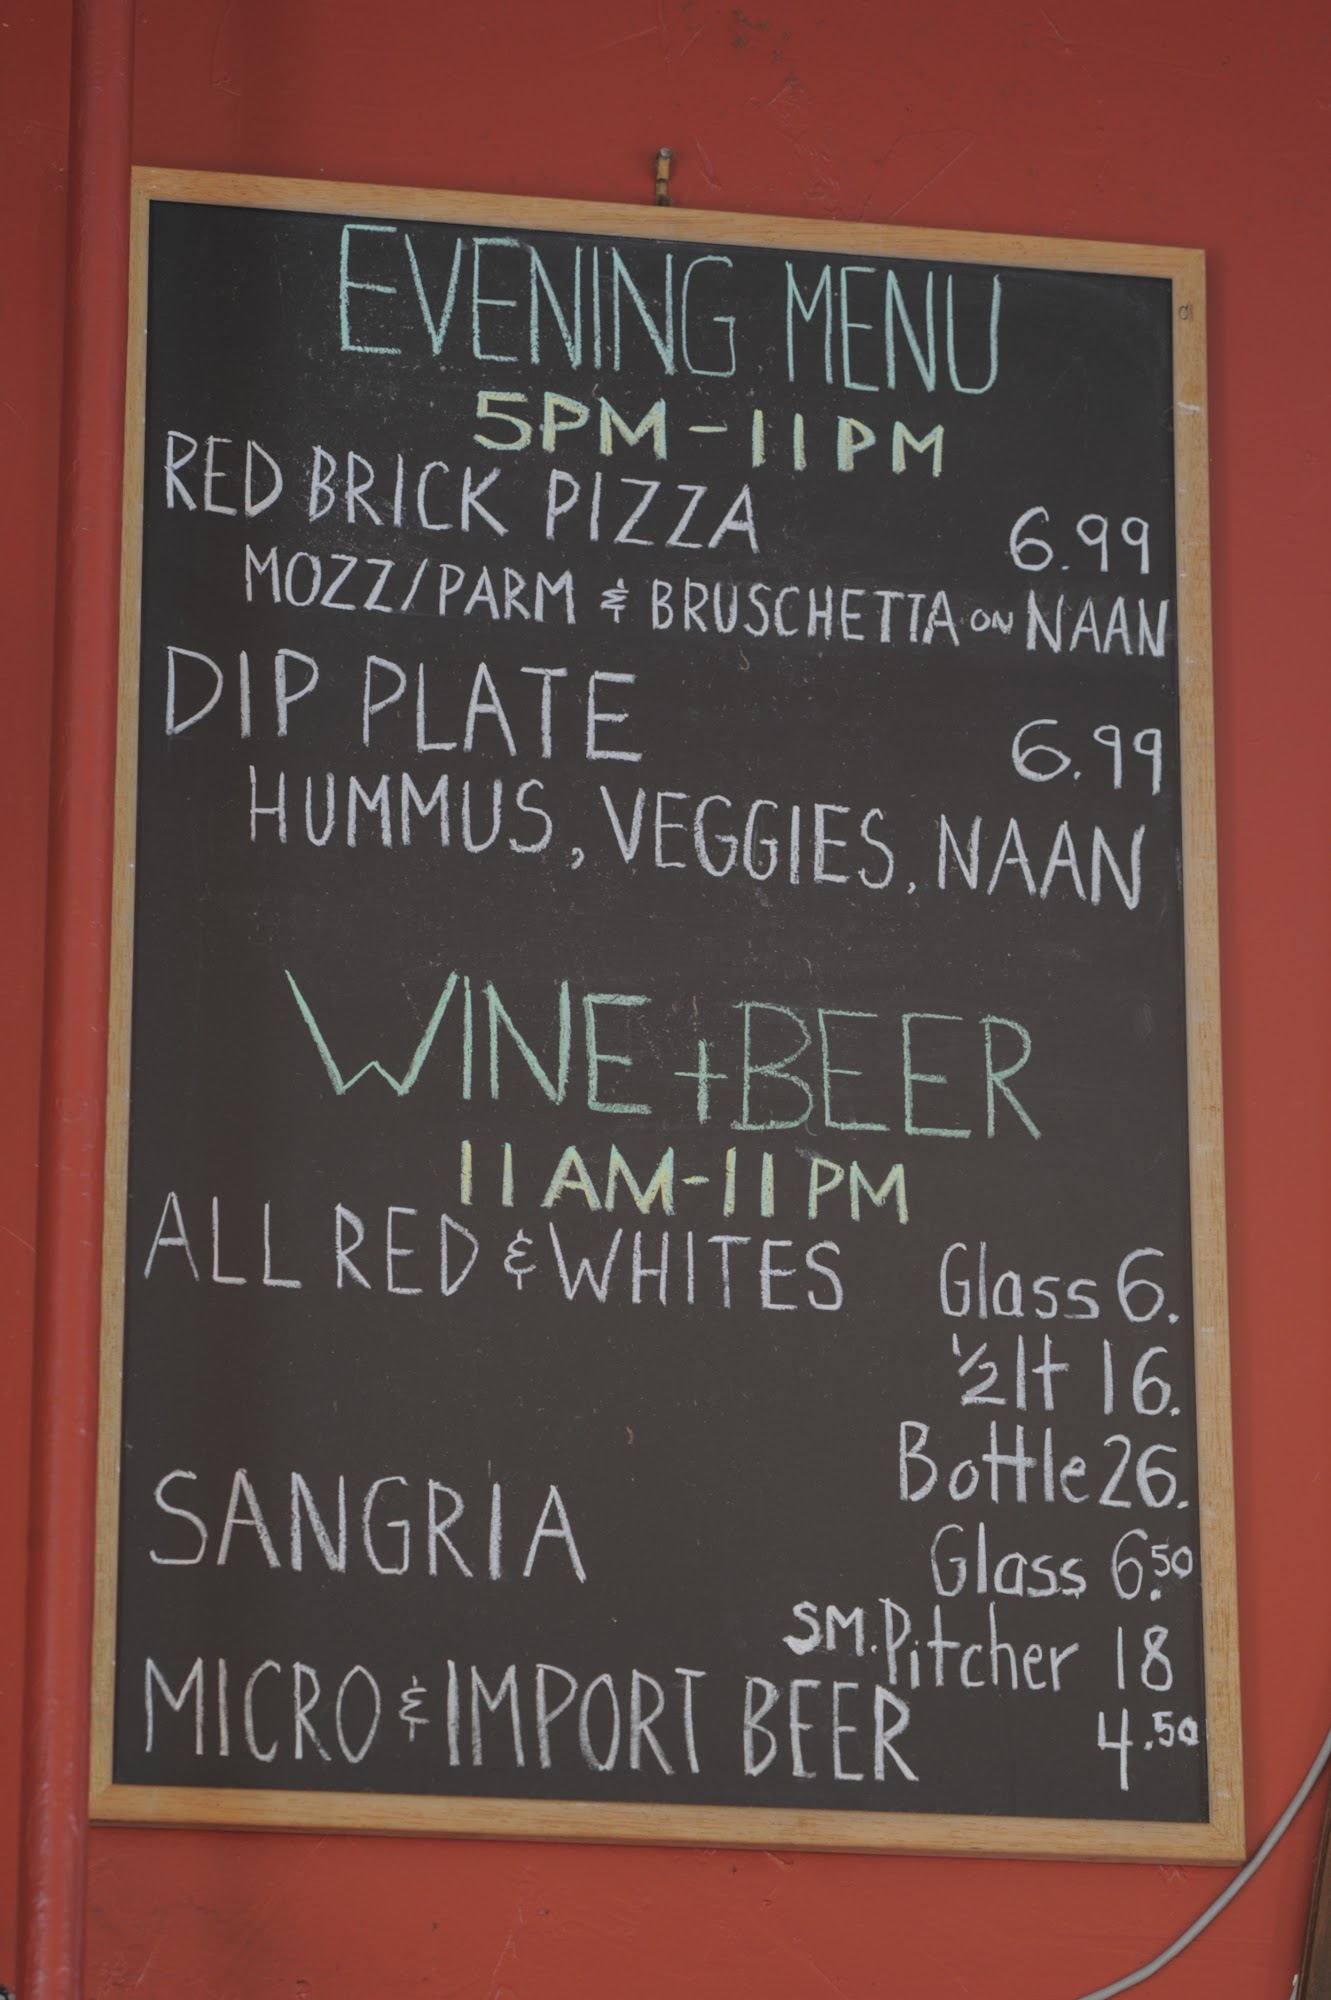 EVENING MENU
5PM-11PM
RED BRICK PIZZA 6.99
MOZZ/PARM & BRUSCHETTA ON NAAN
DIP PLATE 6.99
HUMMUS, VEGGIES, NAAN
WINE + BEER
11AM-11PM
ALL RED & WHITES Glass 6.
½ lt 16.
Bottle 26.
SANGRIA Glass 6.50
SM. Pitcher 18
MICRO & IMPORT BEER 4.50